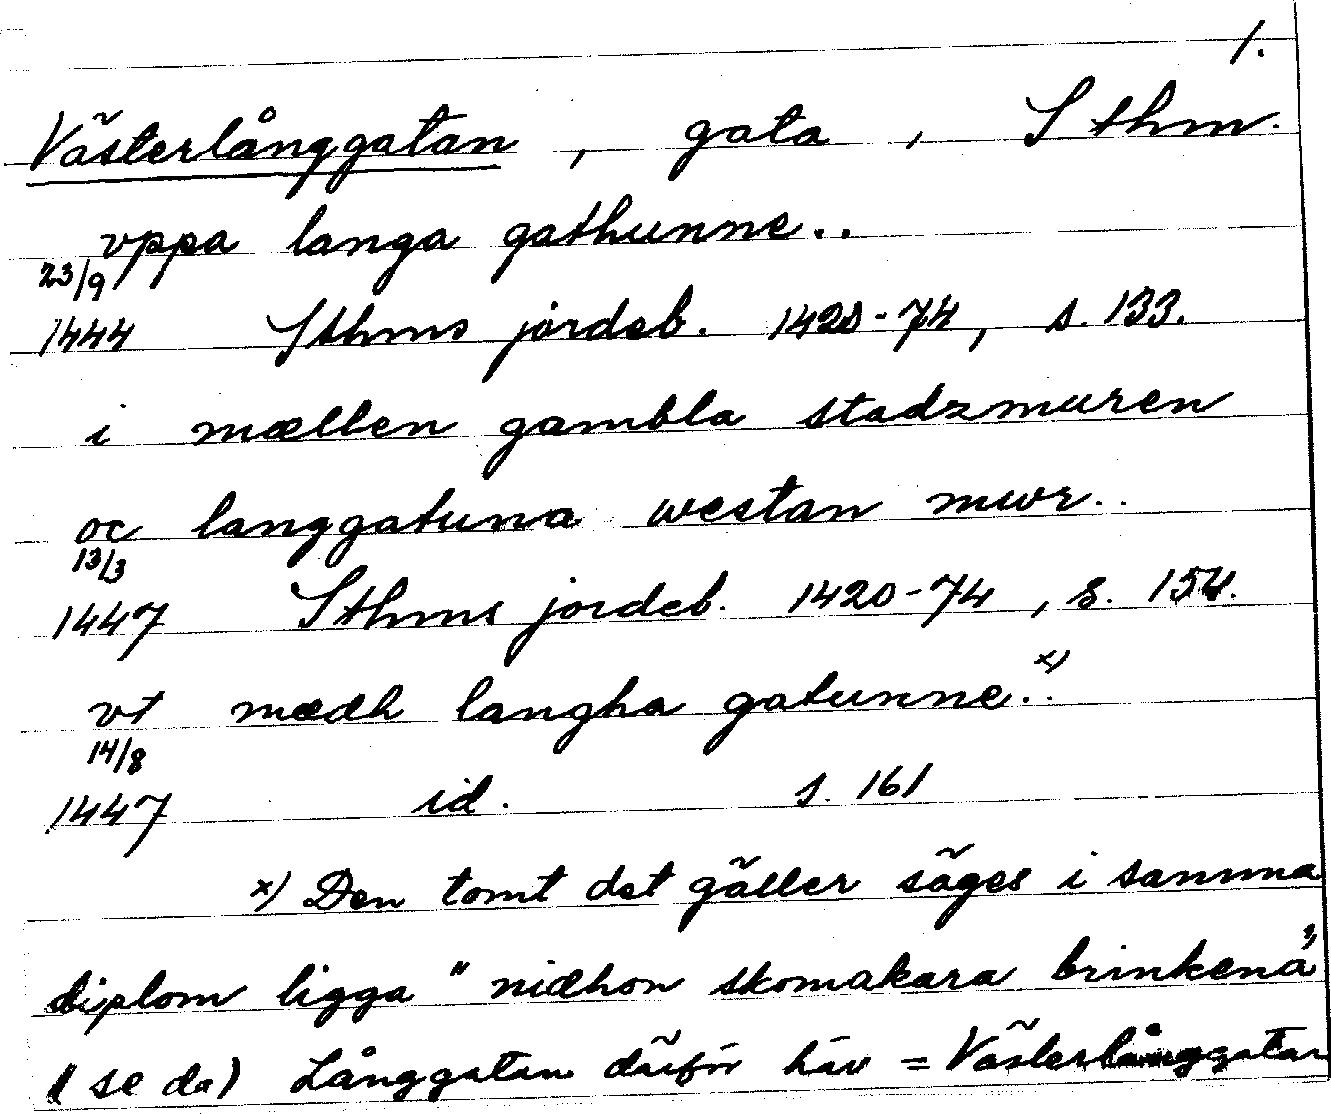 1.
Västerlånggatan, gata, Sthm.
vppa langa gathunne..
23/9
1444 Sthms jordeb. 1420-74, s. 133.
i mællen gambla stadzmuren
oc langgatuna westan mwr..
13/3
1447 Sthms jordeb. 1420-74, s. 154.
vt mædh langha gatunne..x)
14/8
1447 id. s. 161
x) Den tomt det gäller säges i samma
diplom ligga "nidhon skomakara brinkena"
(se da) Långgatan därför här = Västerlånggatan